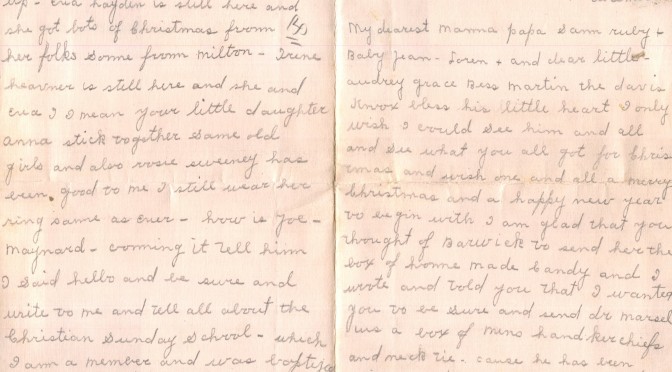 up - Eva hayden is still here and
she got bots of Christmas from
her folks some from milton - Irene
heavner is still here and she and
Eva I I mean your little daughter
anna stick together same old
girls and also rosie sweeney has
been good to me I still wear her
ring same as ever - how is Joe -
maynard - comming it tell him
I said hello and be sure and
write to me and tell all about the
Christian Sunday School - which
I am a member and was baptized
(4)
My dearest mamma papa Sam ruby +
Baby Jean - Loren + and dear little
audrey grace Bess martin the davis
Knox bless his little heart I only
wish I could see him and all
and see what you all got for Chris
tmas and wish one and all a merry
Christmas and a happy new year
to begin with I am glad that you
thought of Barwick to send her the
box of home made Candy and I
wrote and told you that I wanted
you to be sure and send dr marsel
us a box of mens handkerchiefs
and neck tie - cause he has been